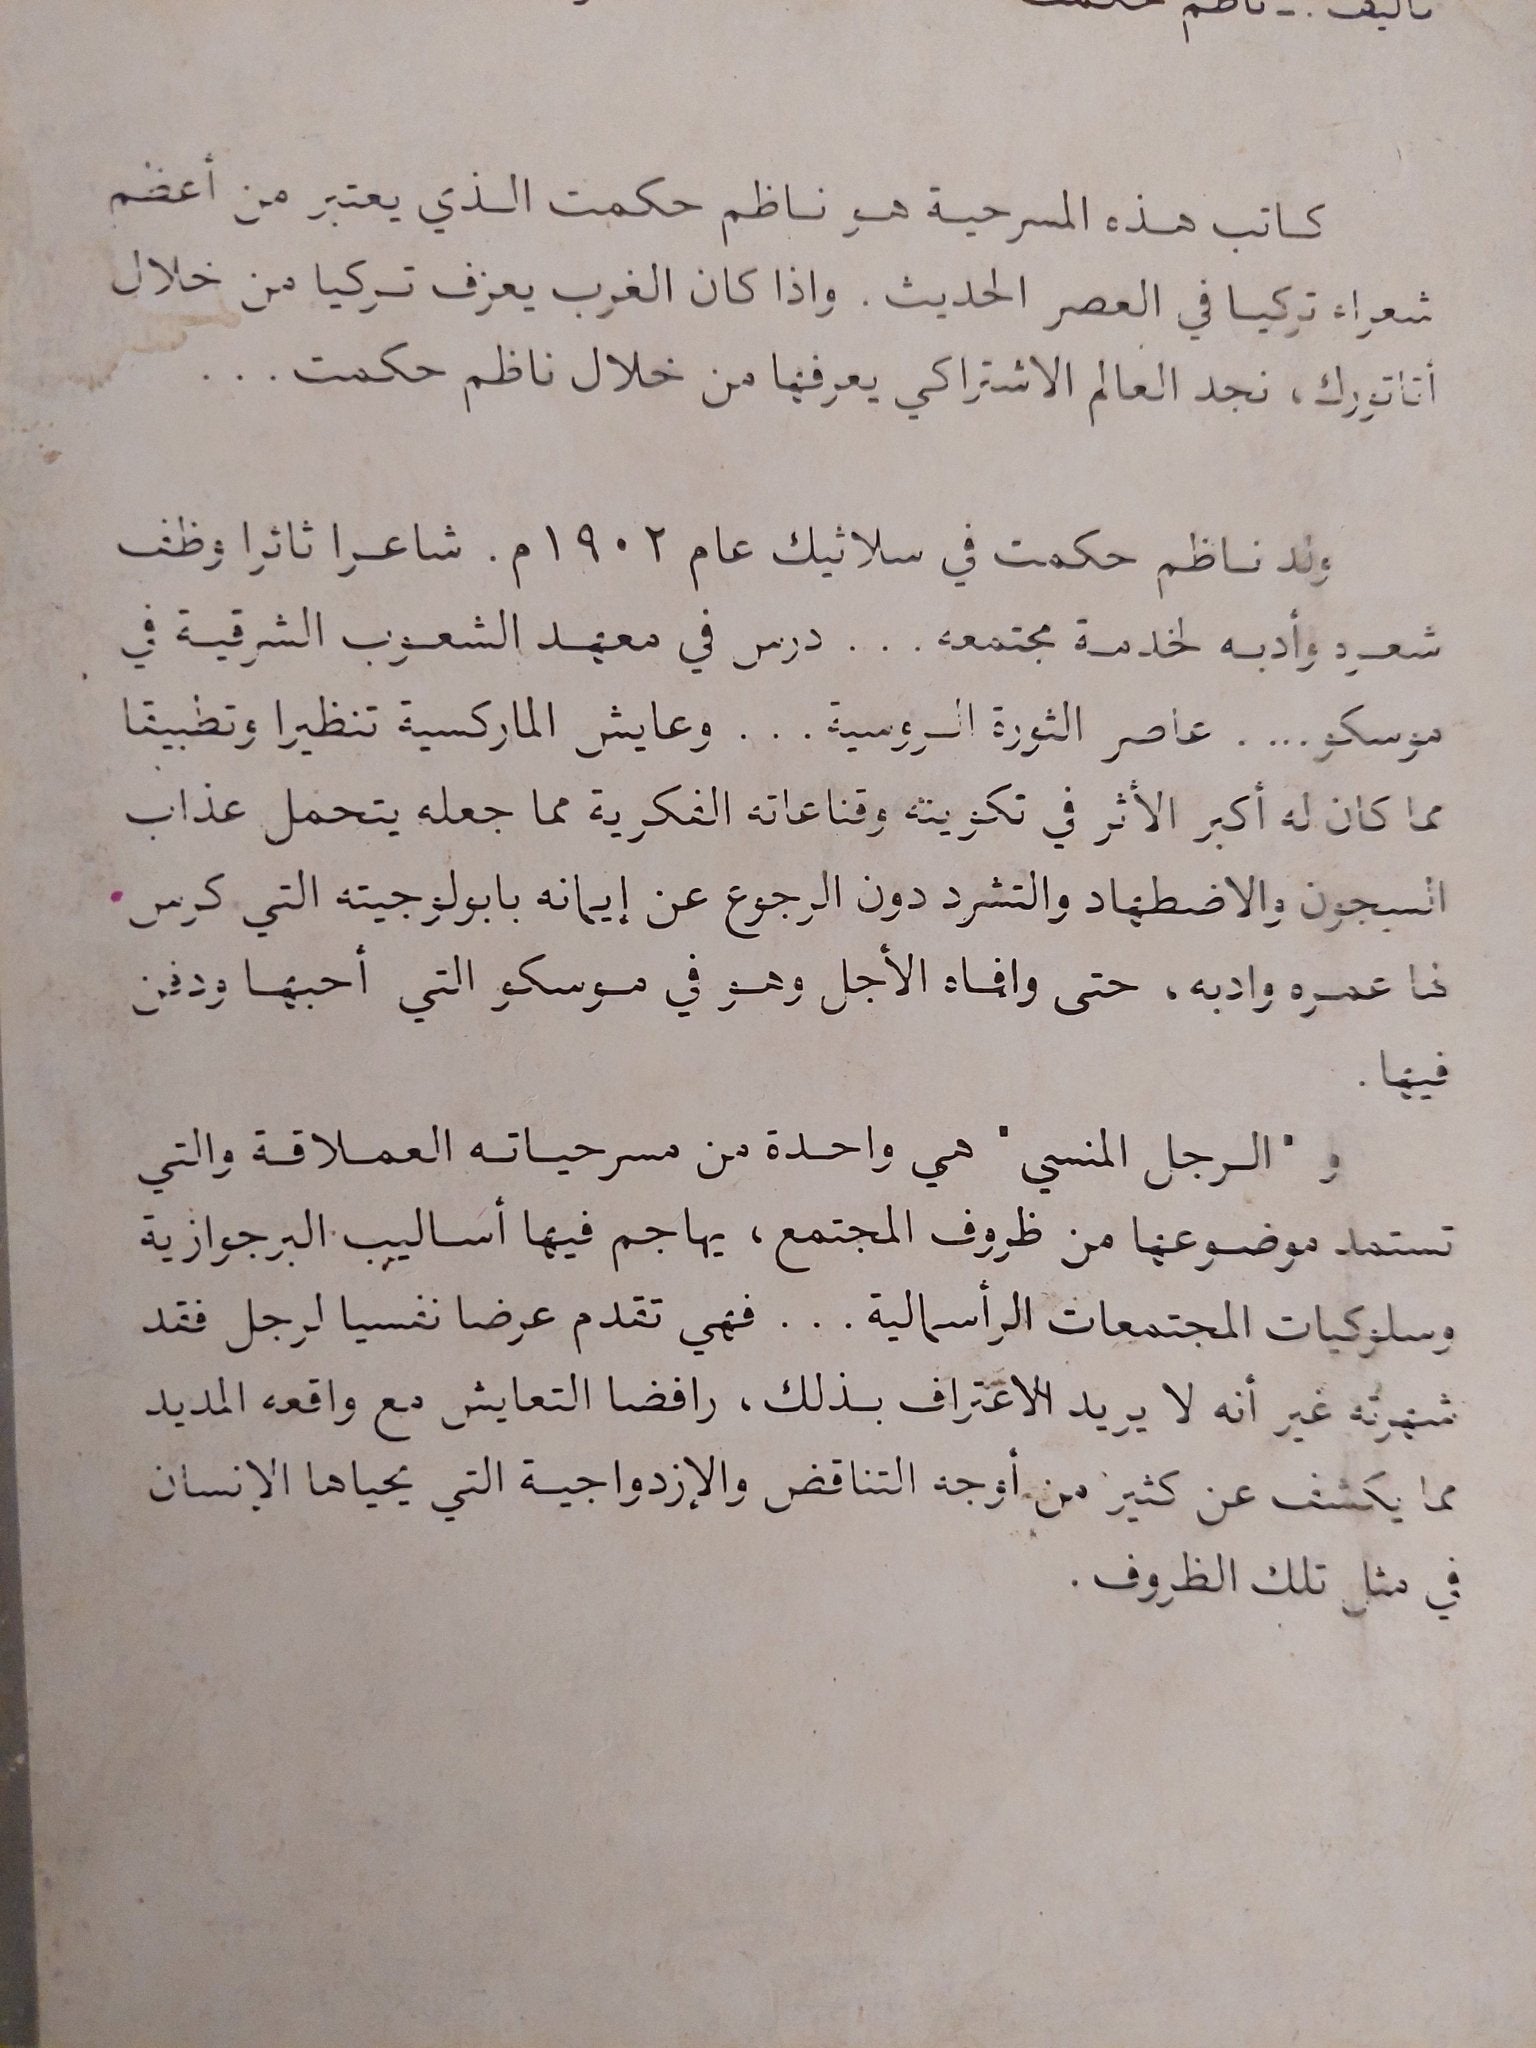 تأليف : ـ ناظم حكمت
كاتب هذه المسرحية هو ناظم حكمت الذي يعتبر من أعظم
شعراء تركيا في العصر الحديث . واذا كان الغرب يعرف تركيا من خلال
أتاتورك ، نجد العالم الاشتراكي يعرفها من خلال ناظم حكمت . . .
ولد ناظم حكمت في سلانيك عام ١٩٠٢ م . شاعرا ثائرا وظف
شعره وأدبه لخدمة مجتمعه . . . درس في معهد الشعوب الشرقية في
موسكو .... عاصر الثورة الروسية . . . وعايش الماركسية تنظيرا وتطبيقا
مما كان له أكبر الأثر في تكوينه وقناعاته الفكرية مما جعله يتحمل عذاب
السجون والاضطهاد والتشرد دون الرجوع عن إيمانه بابولوجيته التي كرس
لها عمره وادبه ، حتى وافاه الأجل وهو في موسكو التي أحبها ودفن
فيها .
و " الرجل المنسي " هي واحدة من مسرحياته العملاقة والتي
تستمد موضوعها من ظروف المجتمع ، يهاجم فيها أساليب البرجوازية
وسلوكيات المجتمعات الرأسمالية . . . فهي تقدم عرضا نفسيا لرجل فقد
شهرته غير أنه لا يريد الاعتراف بذلك ، رافضا التعايش مع واقعه المديد
مما يكشف عن كثير من أوجه التناقض والإزدواجية التي يحياها الإنسان
في مثل تلك الظروف .